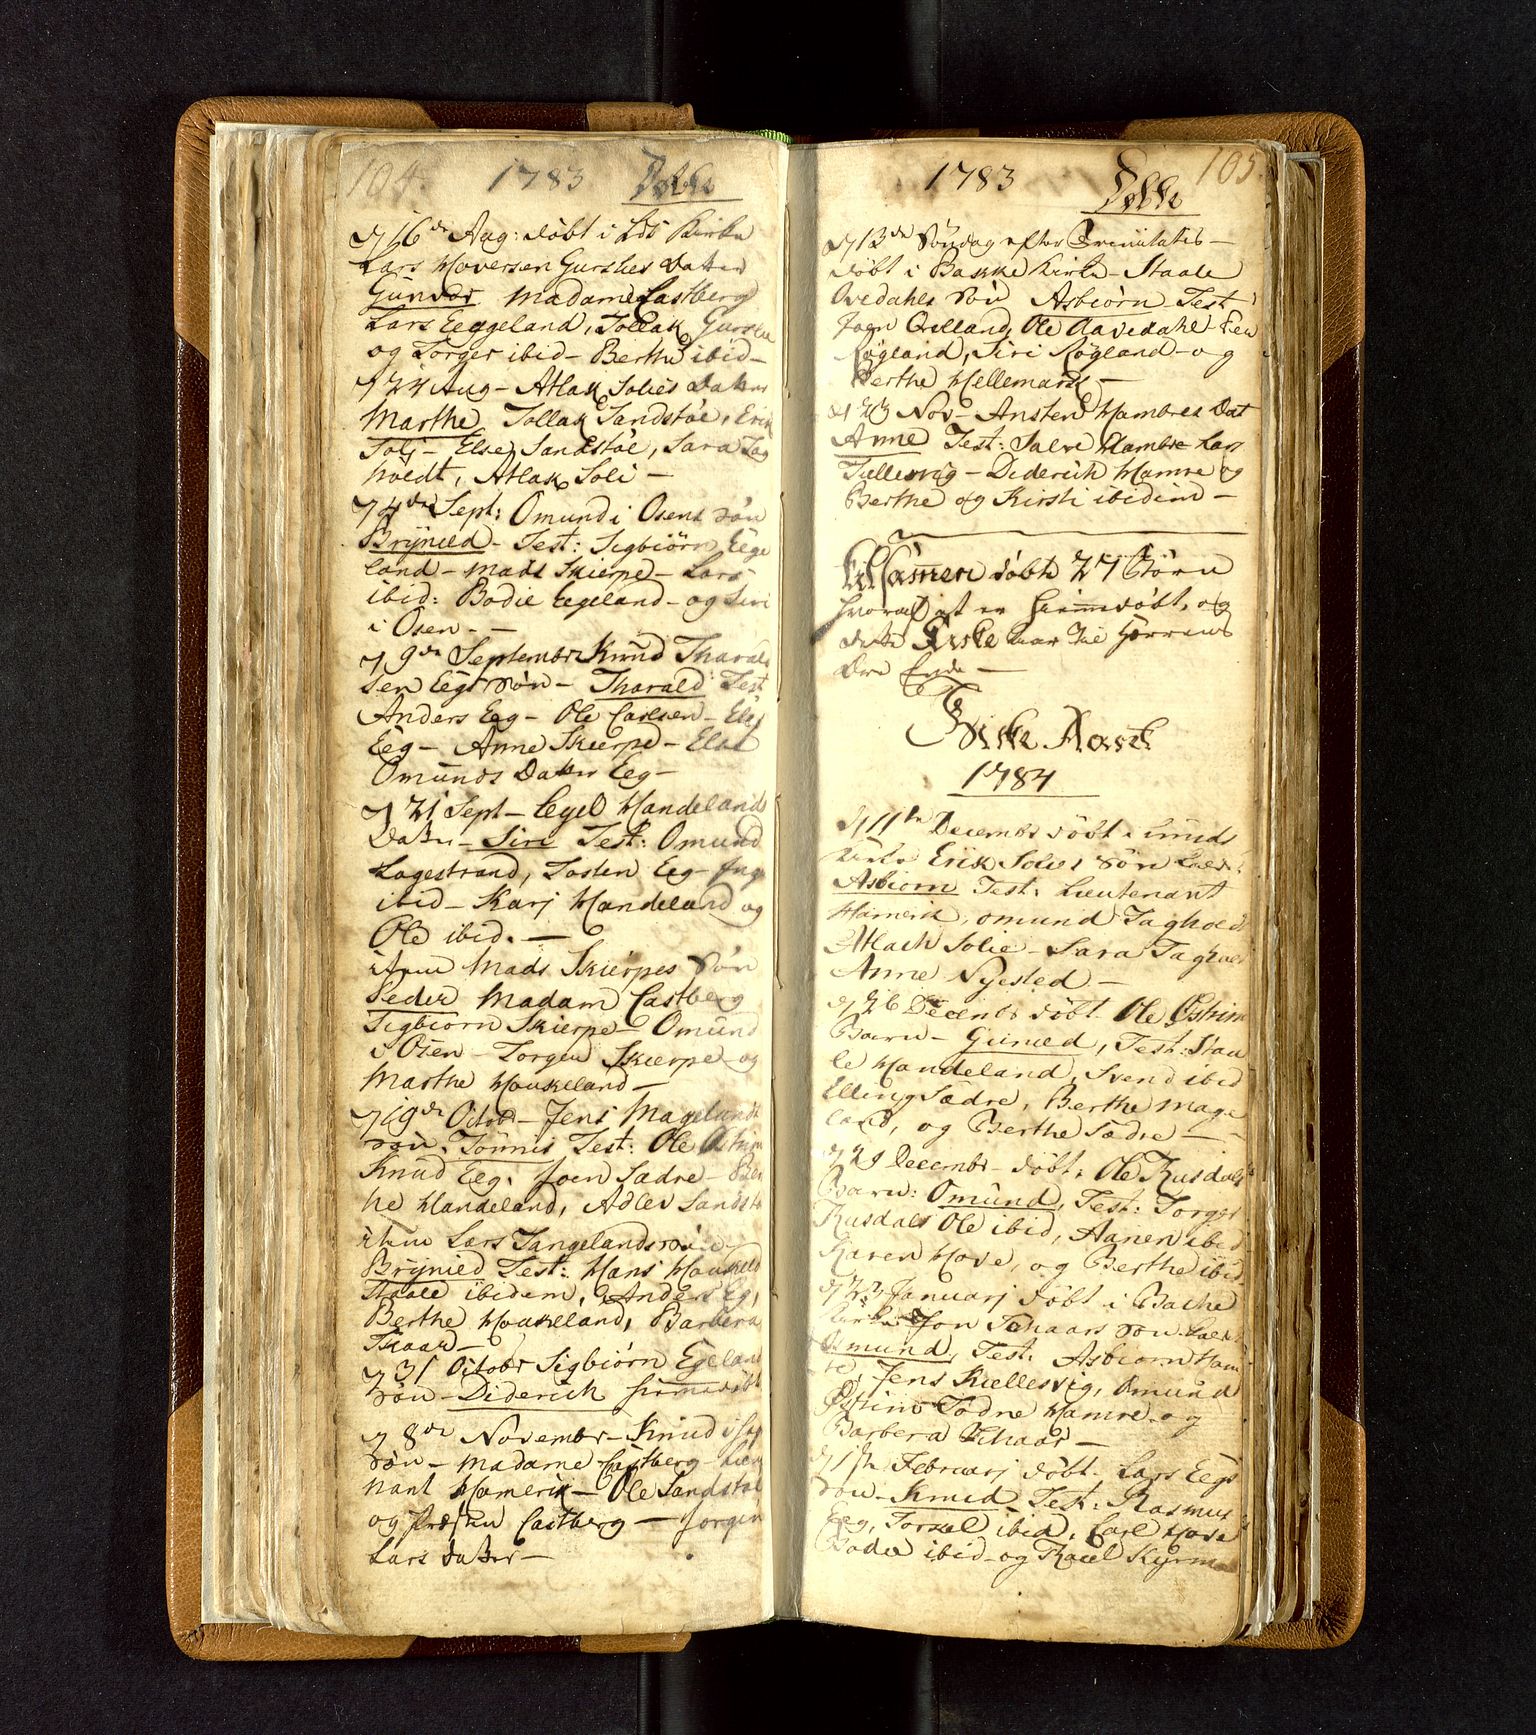 104. 1783 Døbte
d 16de Aug: døbt i Lds Kirke
Lars Hoversen Gurskes Datter
Gunvor Madame Castberg
Lars Eeggeland, Tollak Gurske
og Torger ibid - Berthe ibid -
d 24 Aug - Atlak Solies Datter
Marthe Tollak Sandstøe, Erik
Soli - Else Sandstøe, Sara Tag
holdt, Atlak Soli -
d 4de Sept: Omund i Osens søn
Brynild - Test: Sigbiørn Eege
land - Mads Skierpe - Lars
ibid: Bodie Egeland - og Siri
i Osen -
d 9de Septembr Knud Tharald
sen Eegs søn - Tharald Test
Anders Eeg - Ole Carlsen - Else
Eeg - Anne Skierpe - Else
Omunds Datter Eeg -
d 21 Sept - Egel Handeland
Datter - Siri Test: Omund
Lagestrand, Tosten Eeg - Inge
ibid - Karj Handeland og
Ole ibid. -
item Mads Skierpes Søn
Peder Madam Castberg
Sigbiorn Skierpe - Omund
i Osen - Torgen Skierpe - og
Marthe Houkeland -
d 19de Octobr - Jens Magelands
søn. Tönnis Test: Ole Østrim
Knud Eeg. Joen Sadre - Ber
he Handeland, Adler Sandstø
item Lars Tangelands søn
Brynild Test: Hans Houkeld
Staale ibidem, Anders Eg,
Berthe Houkeland, Barbera
Skaar -
d 31 Octobr Sigbiørn Egeland
søn - Diderich hiemedøbt
d 8de Novembr - Knud i
søn - Madame Castberg - Lieu
nant Hamerik - Ole Sandstøe
og Castberg - Jorgen
Lars Datter -
1783 Døbte 105.
d 13de Søndag efter Trinitatis -
døbt i Bakke Kirke - Staale
Ovedahls Søn Asbiørn Test
Joen Qvelland, Ole Aavedahl -
Røgland, Siri Røgland - og
Berthe Hellemark -
d 23 Nov - Ansten Hambres Dat
Anne Test: Salve Hambre Lars
Tiellesvig - Diderich Hamre og
Berthe og Kirsti ibidem -
Sammen døbte 27 Børn
hvoraf at er hiemdøbt, og
dette Kirke aar til Herrens
Ære Ende -
Kirke Aaret
1784
d 11te Decembr døbt i Lunds
Kirke Erik Solies søn kaldet
Asbiorn Test: Lieutenant
Hamerik, Omund Taghold
Atlach Solie - Sara Taghold
Anne Nysted -
d 26 Decembr døbt Ole Østrim
Barn - Gunild, Test: Staa
le Handeland, Svend ibid
Elling Sadre, Berthe Mage
land, og Berthe Sadre -
d 29 Decembr - døbt: Ole Rusdals
Barn: Omund, Test: Torger
Rusdals Ole ibid, Aanen ibid
Karen Hove, og Berthe ibid
d 23 Januarj døbt i Bache
Kirke Jon Schaars søn kaldet
Omund, Test: Asbiorn Ham
re, Jens Kiellesvig, Omund
Østrim Todne Hamre og
Barbera Schaar -
d 1 Februarj døbt Lars Eegs
søn - Knud Test: Rasmus
Eeg, Torkel ibid, Carl Hove
Bodil ibid - og Rael Kyrm